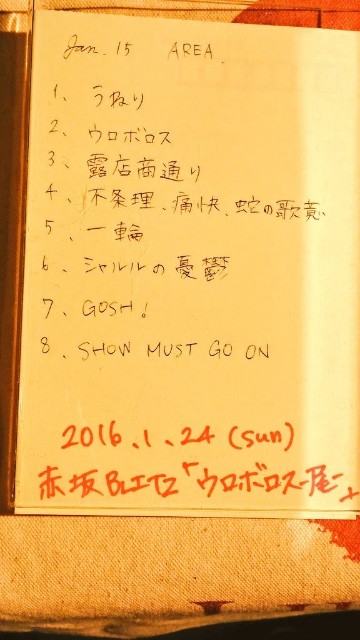 Jan. 15 AREA.
1、うねり
2、ウロボロス
3、露店商通り
4、不条理、痛快、蛇の歌意
5、一輪
6、シャルルの憂鬱
7、GOSH!
8、SHOW MUST GO ON
2016.1.24 (sun)
赤坂BLITZ「ウロボロス-尾-」